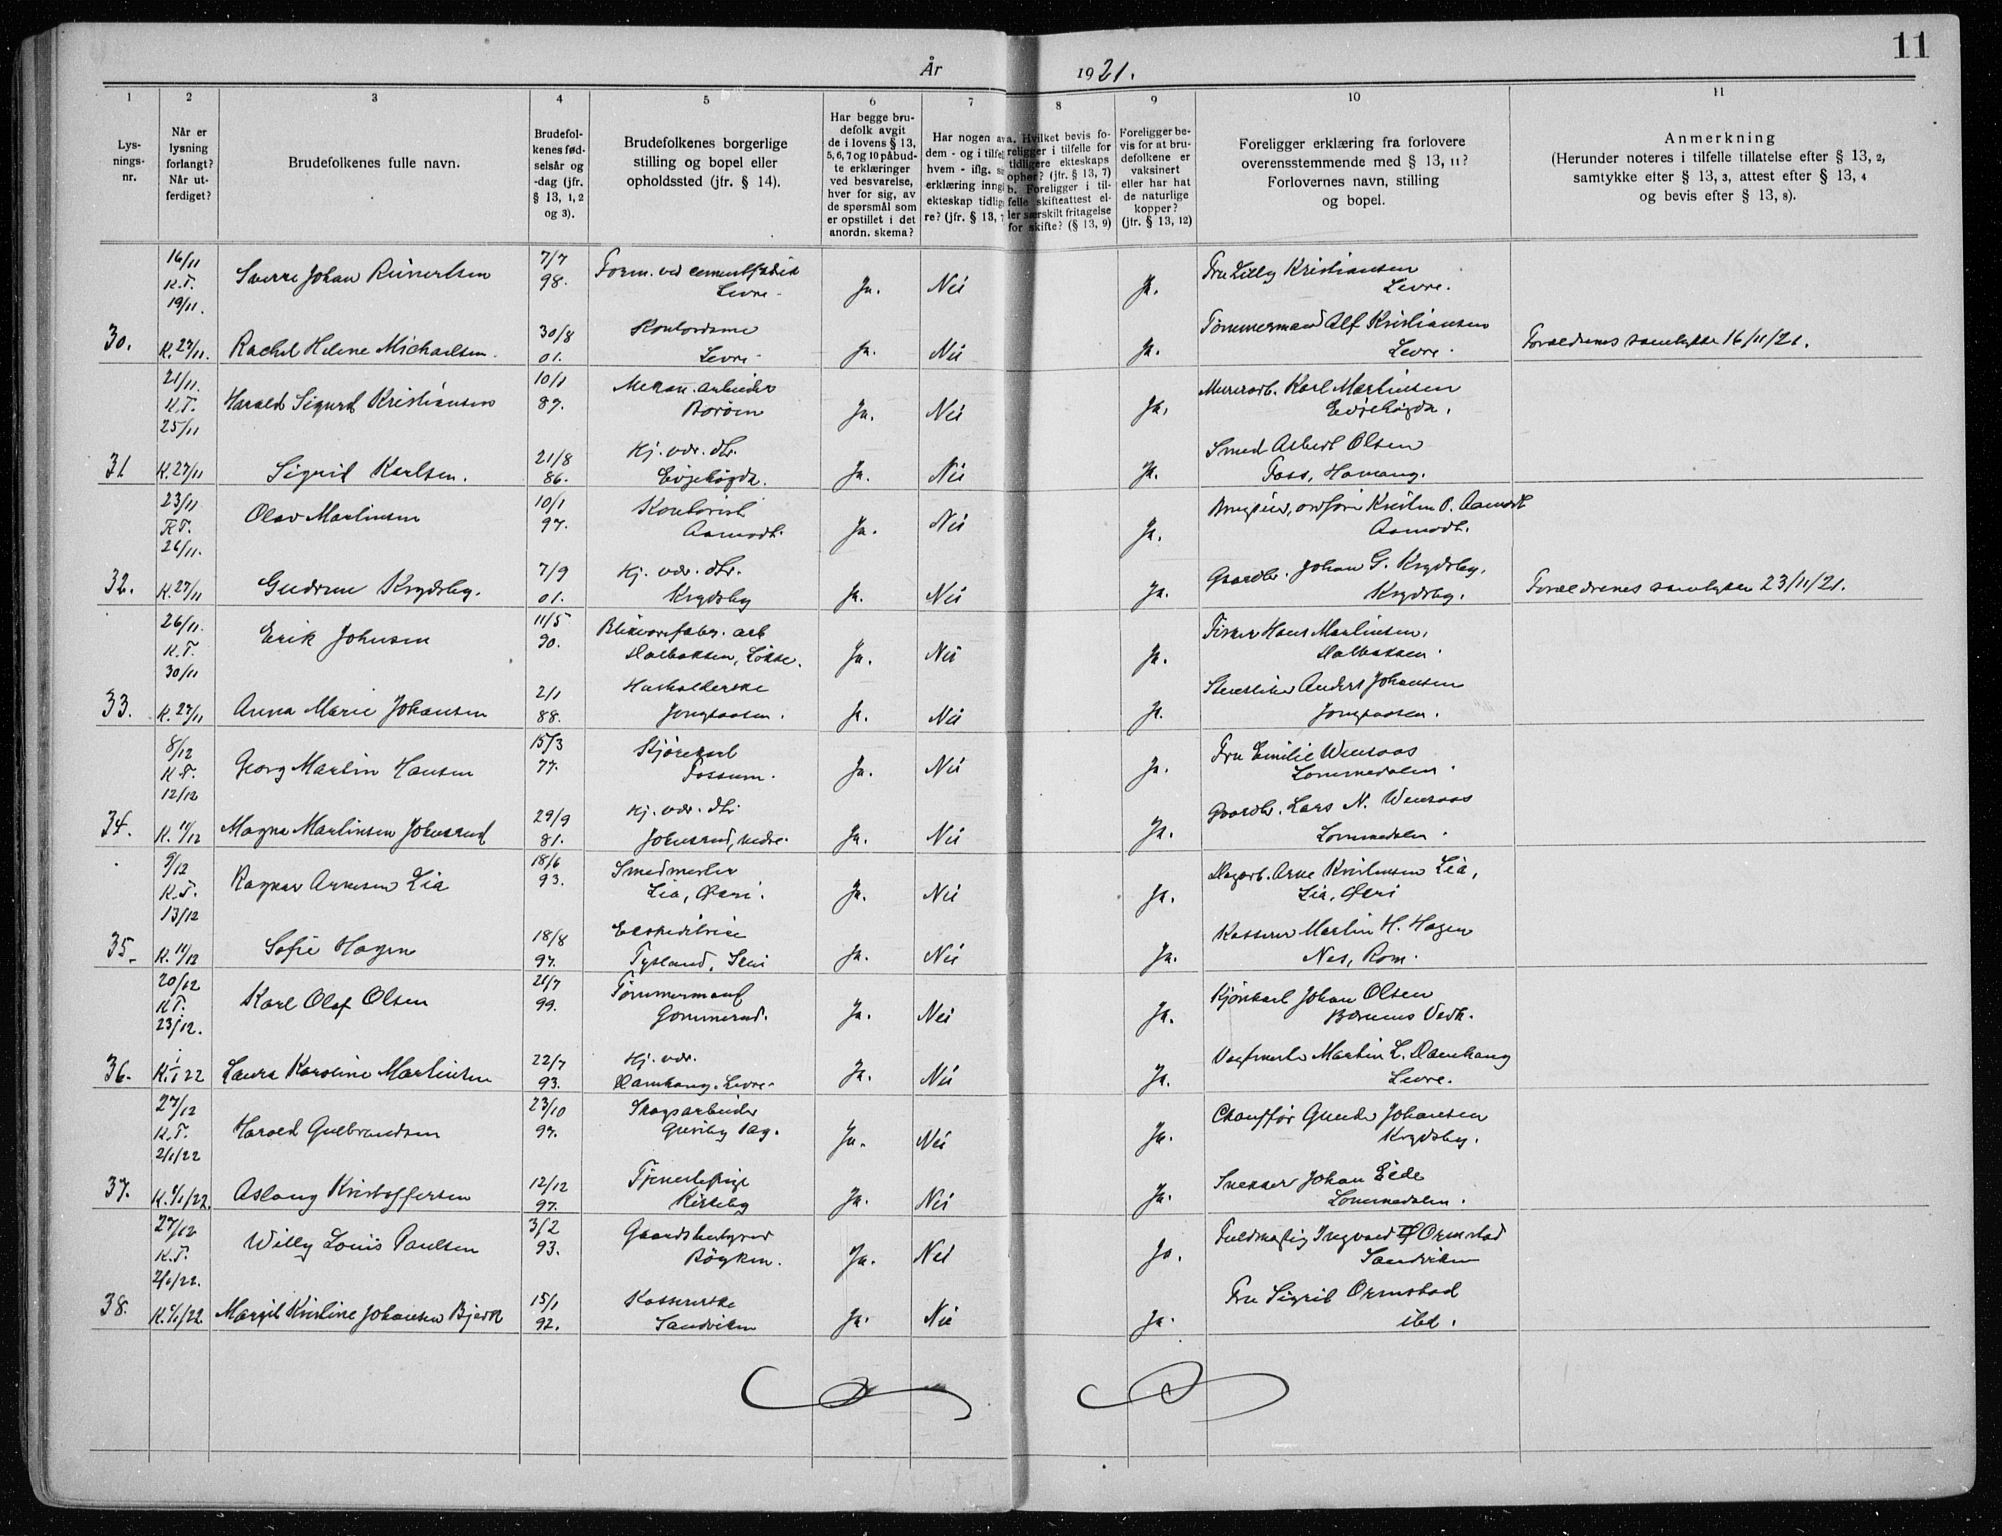 11
År 1921.
1 2 3 4 5 6 7 8 9 10 11
Lys-
nings-
nr.
Når er
lysning
forlangt?
Når ut-
ferdiget?
Brudefolkenes fulle navn.
Brudefol-
kenes fød-
selsår og
-dag (jfr.
§ 13, 1, 2
og 3).
Brudefolkenes borgerlige
stilling og bopel eller
opholdssted (jfr. § 14).
Har begge bru-
defolk avgit
de i lovens § 13,
5, 6, 7 og 10 påbud-
te erklæringer
ved besvarelse,
hver for sig, av
de spørsmål som
er opstillet i det
anordn. skema?
Har nogen av
dem - og i tilfel
hvem - iflg. s
erklæring inngå
ekteskap tidlig
re? (jfr. § 13, 7
a. Hvilket bevis fo-
religger i tilfelle for
tidligere ekteskaps
ophør? (jfr. § 13, 7)
b. Foreligger i til-
felle skifteattest el-
ler særskilt fritagelse
for skifte? (§ 13, 9)
Foreligger be-
vis for at bru-
defolkene er
vaksinert
eller har hat
de naturlige
kopper?
(jfr. § 13, 12)
Foreligger erklæring fra forlovere
overensstemmende med § 13, 11?
Forlovernes navn, stilling
og bopel.
Anmerkning
(Herunder noteres i tilfelle tillatelse efter § 13, 2,
samtykke efter § 13, 3, attest efter § 13, 4
og bevis efter § 13, 8).
16/11 K.T. 19/11. Sverre Johan Reinertsen 7/7 98. Form. ved cementfabrik Levre. Ja. Nei Ja. Fru Lilly Kristiansen Levre.
30. K. 27/11. Rachel Helene Michaelsen. 30/8 01. Kontordame Levre. Ja. Nei Ja. Tømmermand Alf Kristiansen Levre. Forældrenes samtykke 16/11/21.
21/11. K.T. 25/11 Harald Sigurd Kristiansen 10/1 87. Mekan. arbeider Borøen Ja. Nei Ja. Murerarb. Karl Martinsen Evjehøgda.
31 K. 27/11 Sigrid Karlsen. 21/8 86. Hj. vær. dtr. Evjehøgda. Ja. Nei Ja. Smed Albert Olsen Foss, Hamang.
23/11 K.T. 26/11. Olav Martinsen 10/1 97. Kontorist Aamodt. Ja. Nei Ja. ordfører Kristen P. Aamodt Aamodt.
32. K. 27/11 Gudrun Krydsby. 7/9 01. Hj. vær. dtr. Krydsby Ja. Nei Ja. Gaardbr. Johan G. Krydsby. Krydsby. Forældrenes samtykke 23/11/21.
26/11. K.T. 30/11 Erik Johnsen 11/5 90. Blikvarefabr. arb Holbakken, Løkse. Ja. Nei Ja. Fisker Hans Martinsen. Holbakken.
33. K. 27/11 Anna Marie Johansen 2/1 88. Husholderske Jongsaasen. Ja. Nei Ja. Anders Johansen Jongsaasen.
8/12 K.T. 12/12 Georg Martin Hansen 15/3 77. Kjørekarl Fossum. Ja. Nei Ja. Fru Emilie Wensaas Lommedalen.
34. K. 11/12 Magna Martinsen Johnsrud 29/9 81. Hj. vær. dtr Johnsrud, nedre. Ja. Nei Ja. Gaardbr. Lars N. Wensaas Lommedalen.
9/12 K.T. 13/12 Ragnar Arnesen Lia 18/6 93. Smedmester Lia, Østri. Ja. Nei Ja. Dagarb. Arne Kristensen Lia, Lia, Østri
35. K. 11/12 Sofie Hagen 18/8 97. Ekspeditrice Tysland, Skui Ja. Nei Ja. Kasserer Martin H. Hagen Nes, Rom.
20/12 K.T. 23/12. Karl Olaf Olsen 21/7 99. Tømmermand Gommerud. Ja. Nei Ja. Kjørekarl Johan Olsen Bærums Verk.
36. K. 1/1 22 Laura Karoline Martinsen 22/7 93. Hj. vær. Damhaug. Levre. Ja. Nei Ja. Martin L. Damhaug Levre.
27/12 K.T. 2/1/22 Harald Gulbrandsen 23/10 97. Skogsarbeider Ja. Nei Ja. Chauffør Gunder Johansen Krydsby.
37. K. 1/1/22. Aslaug Kristoffersen 12/12 97. Tjenestepige Kirkeby Ja. Nei Ja. Snekker Johan Eide Lommedalen.
27/12 K.T. 2/1/22. Willy Louis Paulsen 3/2 93. Gaardsbestyrer Røyken. Ja. Nei Ja. Fuldmægtig Ingvald Ø Ormstad Sandviken
38. K. 1/1/22 Margit Kristine Johansen Bjerk 15/1 92. Kassererske Sandviken Ja. Nei Ja. Fru Sigrid Ormstad ibd.